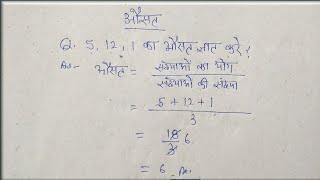 औसत
Q. 5, 12, 1 का औसत ज्ञात करे?
Ans- औसत = संख्याओं का योग / संख्याओं की संख्या
= 5 + 12 + 1 / 3
= 18 / 3 6
= 6 Ans.